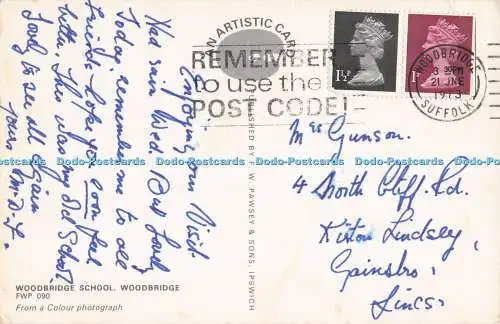 Enjoying our Visit.
Had rain Wed. But lovely
Today remember me to all
friends hope you soon feel
better. She was my old School.
Lord to see all again
yours
AN ARTISTIC CARD
PUBLISHED BY F. W. PAWSEY & SONS, IPSWICH
WOODBRIDGE SCHOOL, WOODBRIDGE
FWP 090
From a Colour photograph
REMEMBER
to use the
POST CODE!
1½P
1P
WOODBRIDGE
3 30PM
21 JNE
1973
SUFFOLK
Mrs Gunson.
4 North Cliff. Rd.
Kirton Lindsey,
Gainsbro,
Lincs
Dodo-Postcards Dodo-Postcards Dodo-Postcards Dodo-Postcards